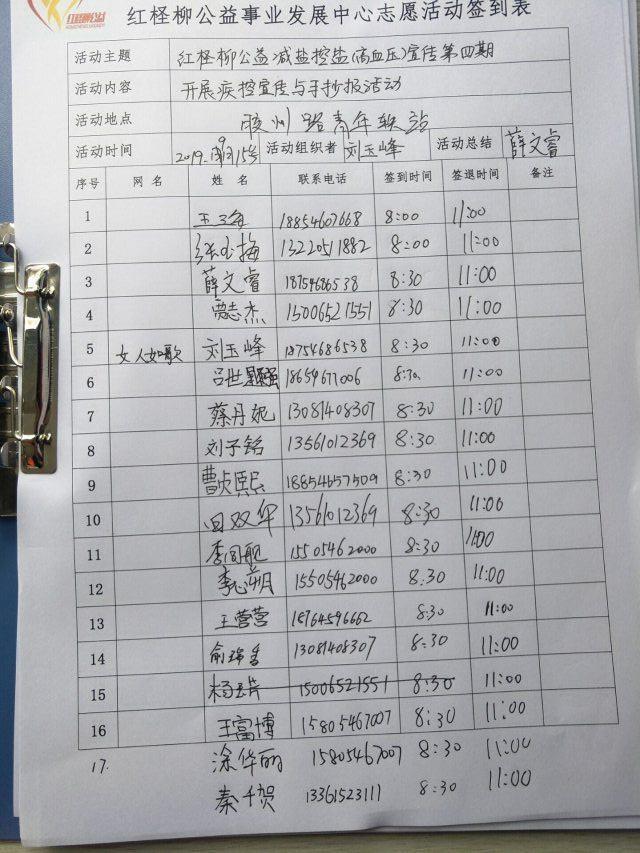 红柽柳公益事业发展中心志愿活动签到表
活动主题 红柽柳公益减盐控盐(高血压)宣传第四期
活动内容 开展疾控宣传与手抄报活动
活动地点 胶州路青年驿站
活动时间 2019. 9月15号 活动组织者 刘玉峰 活动总结 薛文睿
序号 网名 姓名 联系电话 签到时间 签退时间 备注
1 18854607668 8:00 11:00
2 张玉梅 13220511882 8:00 11:00
3 薛文睿 18754686538 8:30 11:00
4 贾志杰 15006521551 8:30 11:00
5 女人如歌 刘玉峰 18754686538 8:30 11:00
6 吕世强 18659677006 8:30 11:00
7 蔡丹妮 13081408307 8:30 11:00
8 刘子铭 13561012369 8:30 11:00
9 曹贞熙 18854657509 8:30 11:00
10 田双年 13561012369 8:30 11:00
11 15505462000 8:30 11:00
12 李心朔 15505462000 8:30 11:00
13 王营营 18764596662 8:30 11:00
14 俞瑞香 13081408307 8:30 11:00
15 15006521551 8:30 11:00
16 王富博 15805467007 8:30 11:00
17. 涂华丽 15805467007 8:30 11:00
秦千贺 13361523111 8:30 11:00